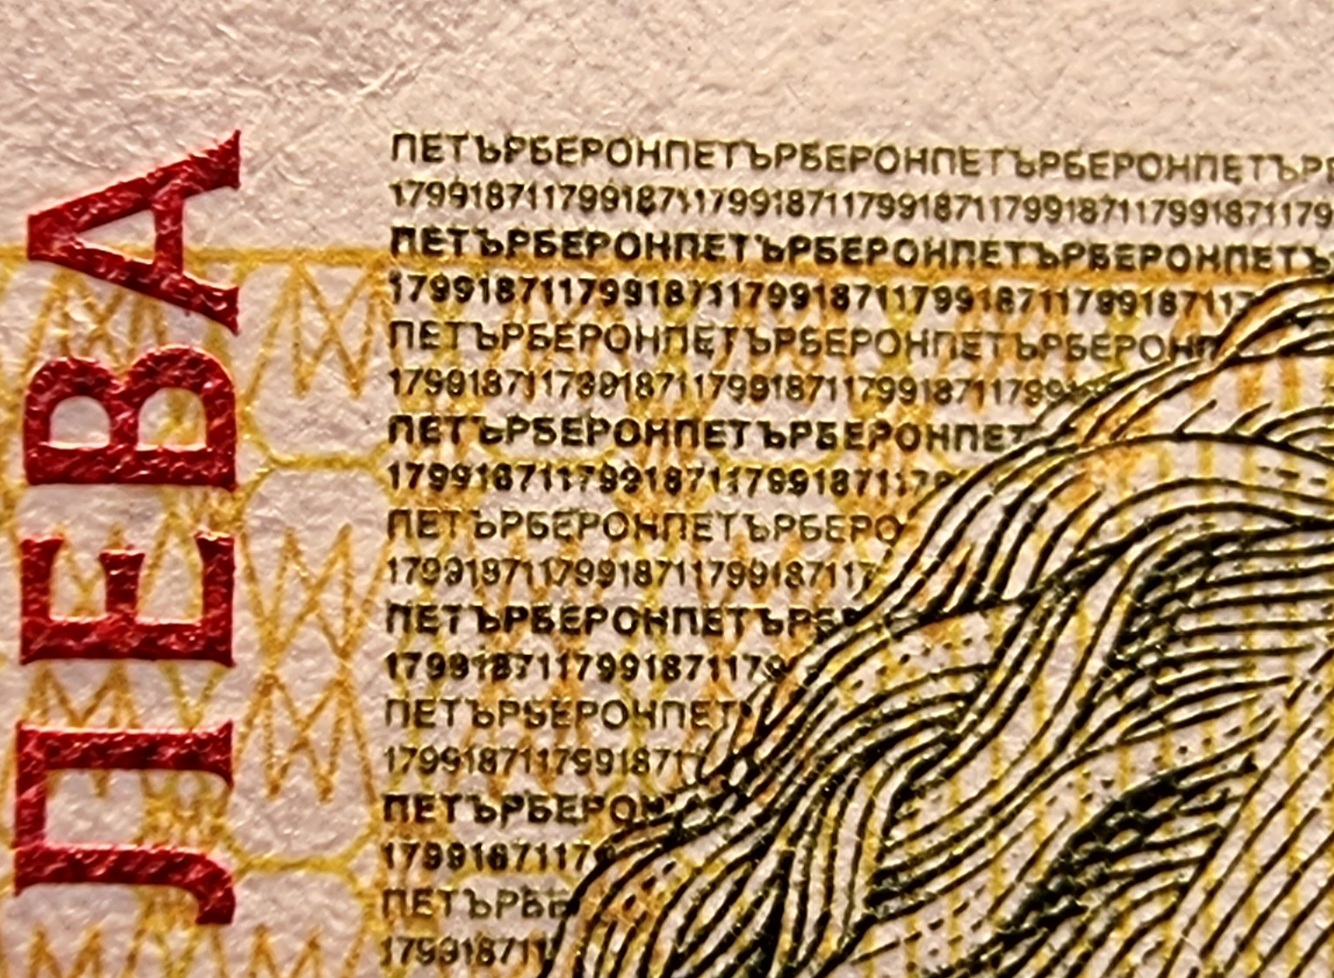 ЛЕВА
ПЕТЪРБЕРОНПЕТЪРБЕРОНПЕТЪРБЕРОНПЕТЪР
179918711799187117991871179918711799187117991871179
ПЕТЪРБЕРОНПЕТЪРБЕРОНПЕТЪРБЕРОНПЕТЪ
179918711799187117991871179918711799187117
ПЕТЪРБЕРОНПЕТЪРБЕРОНПЕТЪРБЕРОН
179918711799187117991871179918711799
ПЕТЪРБЕРОНПЕТЪРБЕРОНПЕТ
179918711799187117991871179
ПЕТЪРБЕРОНПЕТЪРБЕРО
17991871179918711799187117
ПЕТЪРБЕРОНПЕТЪРБ
1799187117991871179
ПЕТЪРБЕРОНПЕТ
17991871179918711
ПЕТЪРБЕРОН
17991871179
ПЕТЪРБЕ
179918711